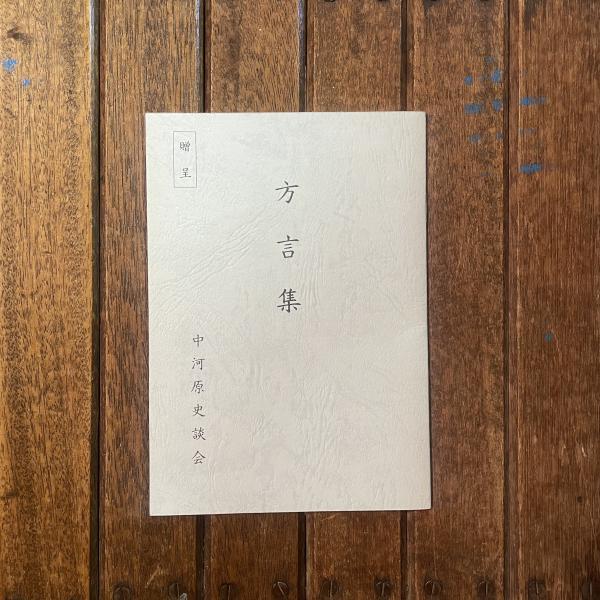 贈呈
方言集
中河原史談会